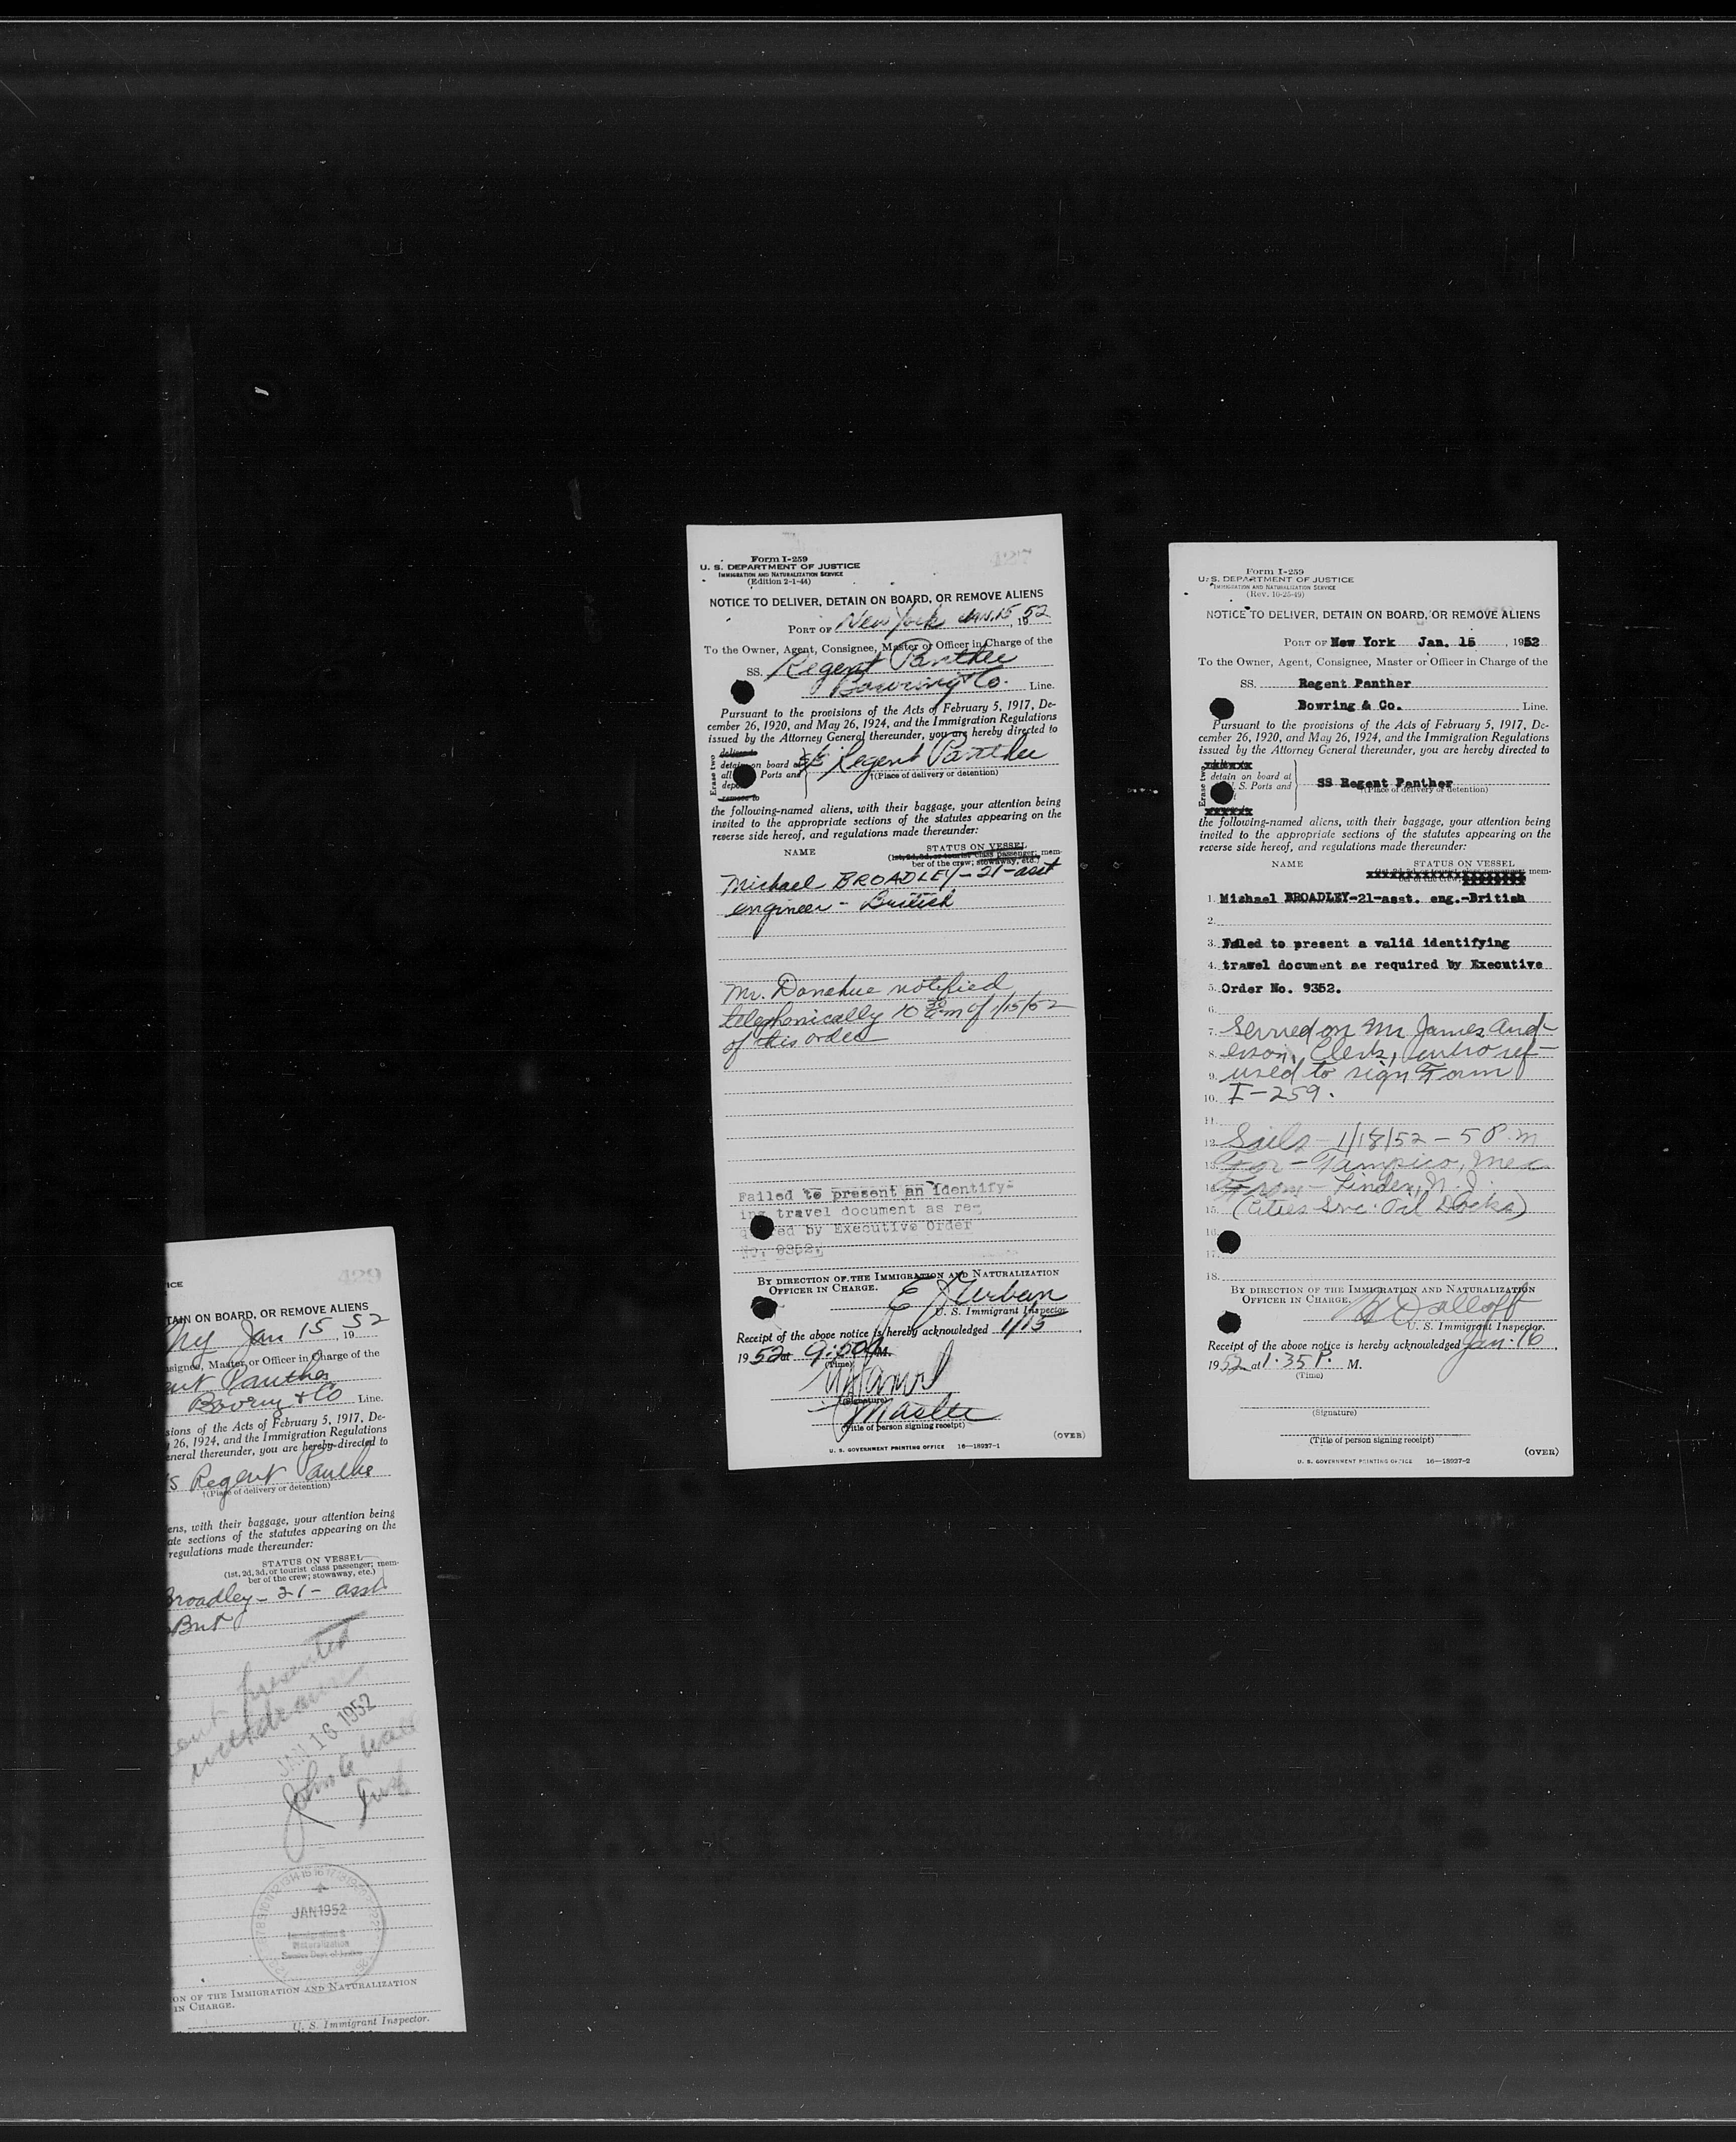 Form I-259
U. S. DEPARTMENT OF JUSTICE
IMMIGRATION AND NATURALIZATION SERVICE
(Edition 2-1-44)
NOTICE TO DELIVER, DETAIN ON BOARD, OR REMOVE ALIENS
PORT OF New York Jan. 15, 1952
To the Owner, Agent, Consignee, Master or Officer in Charge of the
SS. Regent Panther
Bowring & Co. Line.
Pursuant to the provisions of the Acts of February 5, 1917, De-
cember 26, 1920, and May 26, 1924, and the Immigration Regulations
issued by the Attorney General thereunder, you are hereby directed to
Erase two
deliver to
detain on board at S/S Regent Panther
all Ports and †(Place of delivery or detention)
remove to
the following-named aliens, with their baggage, your attention being
invited to the appropriate sections of the statutes appearing on the
reverse side hereof, and regulations made thereunder:
NAME STATUS ON VESSEL
(1st, 2d, 3d, or tourist class passenger; mem-
ber of the crew; stowaway, etc.)
Michael BROADLEY - 21 - asst
engineer - British
Mr. Donehue notified
telephonically 10 30 am of 1/15/52
of this order
Failed to present an identify-
ing travel document as re-
red by Executive Order
No. 9352.
BY DIRECTION OF THE IMMIGRATION AND NATURALIZATION
OFFICER IN CHARGE.
E J Urban
U. S. Immigrant Inspector
Receipt of the above notice is hereby acknowledged 1/15,
1952 at 9:50 A M.
(Time)
(Signature)
Master
(Title of person signing receipt)
(OVER)
U. S. GOVERNMENT PRINTING OFFICE 16—18937-1
Form I-259
U. S. DEPARTMENT OF JUSTICE
IMMIGRATION AND NATURALIZATION SERVICE
(Rev. 10-25-49)
NOTICE TO DELIVER, DETAIN ON BOARD, OR REMOVE ALIENS
PORT OF New York Jan. 15, 1952
To the Owner, Agent, Consignee, Master or Officer in Charge of the
SS. Regent Panther
Bowring & Co. Line.
Pursuant to the provisions of the Acts of February 5, 1917, De-
cember 26, 1920, and May 26, 1924, and the Immigration Regulations
issued by the Attorney General thereunder, you are hereby directed to
Erase two
detain on board at
S. Ports and SS Regent Panther
†(Place of delivery or detention)
the following-named aliens, with their baggage, your attention being
invited to the appropriate sections of the statutes appearing on the
reverse side hereof, and regulations made thereunder:
NAME STATUS ON VESSEL
mem-
ber of the crew;
1. Mishael BROADLEY-21-asst. eng.-British
2.
3. Failed to present a valid identifying
4. travel document as required by Executive
5. Order No. 9352.
6.
7. Served on Mr James And-
8. erson, Clerk, who ref-
9. used to sign Form
10. I-259.
11.
12. Sails - 1/18/52 - 5 P.m
13. For - Tampico, Mex
14. From - Linden, N. J.
15. (Cities Svc. Oil Docks)
16.
17.
18.
BY DIRECTION OF THE IMMIGRATION AND NATURALIZATION
OFFICER IN CHARGE.
U. S. Immigrant Inspector.
Receipt of the above notice is hereby acknowledged Jan. 16,
1952 at 1:35 P. M.
(Time)
(Signature)
(Title of person signing receipt)
(OVER)
U. S. GOVERNMENT PRINTING OFFICE 16—18937-2
429
ICE
TAIN ON BOARD, OR REMOVE ALIENS
NY Jan 15, 1952
signee, Master or Officer in Charge of the
ent Panther
Bowring & Co Line.
sions of the Acts of February 5, 1917, De-
26, 1924, and the Immigration Regulations
eneral thereunder, you are hereby directed to
S Regent Panther
†(Place of delivery or detention)
ens, with their baggage, your attention being
ate sections of the statutes appearing on the
regulations made thereunder:
STATUS ON VESSEL
(1st, 2d, 3d, or tourist class passenger; mem-
ber of the crew; stowaway, etc.)
Broadley - 21 - asst
Brit
ent presented
withdrawn
JAN 16 1952
JAN 1952
Immigration &
Naturalization
Service Dept of Justice
ON OF THE IMMIGRATION AND NATURALIZATION
IN CHARGE.
U. S. Immigrant Inspector.